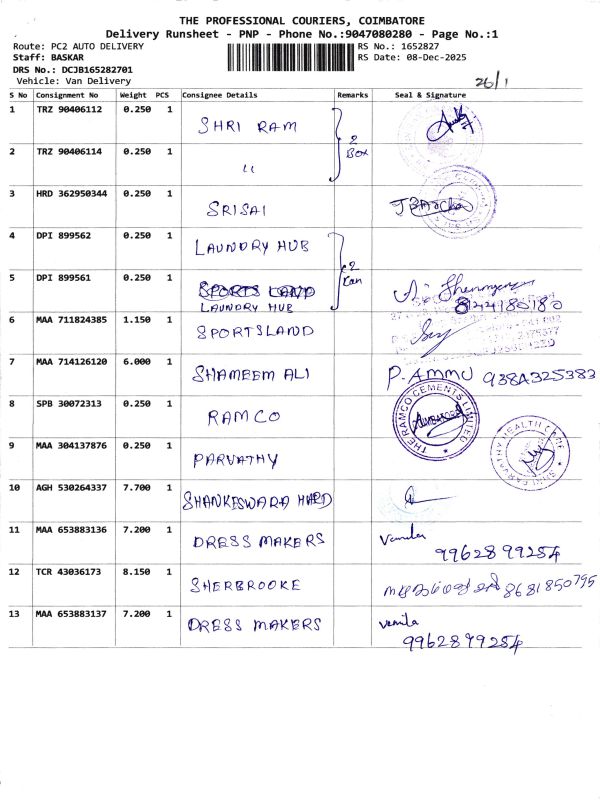 THE PROFESSIONAL COURIERS, COIMBATORE
Delivery Runsheet - PNP - Phone No.:9047080280 - Page No.:1
Route: PC2 AUTO DELIVERY
RS No.: 1652827
Staff: BASKAR
RS Date: 08-Dec-2025
DRS No.: DCJB165282701
Vehicle: Van Delivery
26/1
S No Consignment No Weight PCS Consignee Details Remarks Seal & Signature
1 TRZ 90406112 0.250 1 SHRI RAM
2 Box
2 TRZ 90406114 0.250 1 "
3 HRD 362950344 0.250 1 SRISAI
4 DPI 899562 0.250 1 LAUNDRY HUB
2
5 DPI 899561 0.250 1 SPORTS LAND
LAUNDRY HUB 8144180180
6 MAA 711824385 1.150 1 SPORTSLAND
7 MAA 714126120 6.000 1 SHAMEEM ALI P. AMMU 9384325383
8 SPB 30072313 0.250 1 RAMCO THE RAMCO CEMENTS LIMITED
9 MAA 304137876 0.250 1 PARVATHY SHRI PARVATHY HEALTH CARE
10 AGH 530264337 7.700 1 SHANKESWARA HARD
11 MAA 653883136 7.200 1 DRESS MAKERS Vanila
9962899254
12 TCR 43036173 8.150 1 SHERBROOKE 8681850795
13 MAA 653883137 7.200 1 DRESS MAKERS vanila
9962899254